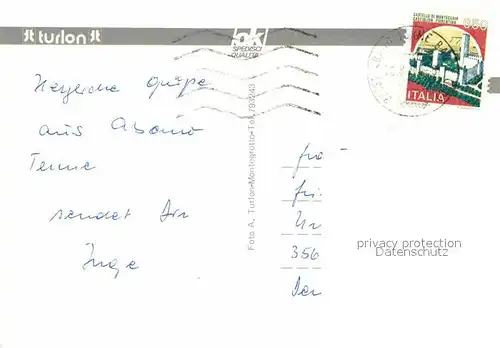 turlon
ok
SPEDISCI
QUALITÀ
CASTELLO DI MONTECCHIO
CASTIGLION FIORENTINO
850
ITALIA
Herzliche Grüße
aus Abano
Terme
sendet Dir
Inge
Foto A. Turlon-Montegrotto-Tel. 793243
356
privacy protection
Datenschutz